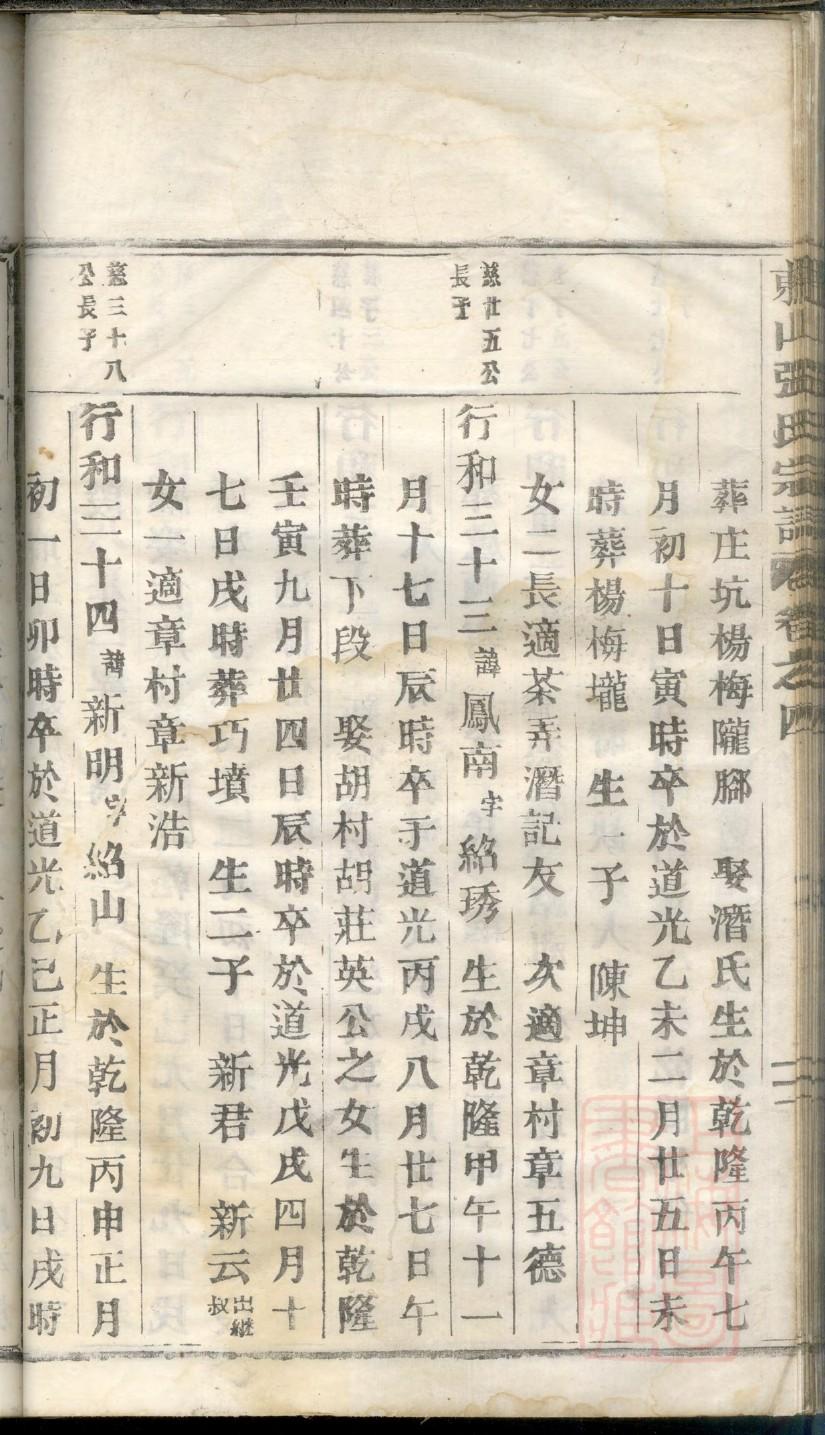 張氏宗譜卷之四
葬庄坑楊梅隴腳 娶潛氏生於乾隆丙午七
月初十日寅時卒於道光乙未二月廿五日未
時葬楊梅壠 生一子火陳坤
女二長適茶弄潛記友 次適章村章五德
慈廿五公長子
行和三十三諱鳳南字紹琇 生於乾隆甲午十一
月十七日辰時卒于道光丙戌八月廿七日午
時葬下段 娶胡村胡莊英公之女生於乾隆
壬寅九月廿四日辰時卒於道光戊戌四月十
七日戌時葬巧墳 生二子 新君 新云出繼叔
女一適章村章新浩
慈三十八公長子
行和三十四諱新明字紹山 生於乾隆丙申正月
初一日卯時卒於道光乙巳正月初九日戌時